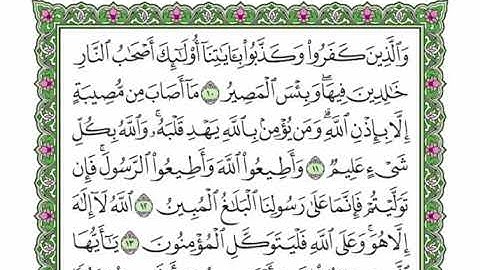 وَٱلَّذِينَ كَفَرُوا۟ وَكَذَّبُوا۟ بِـَٔايَٰتِنَآ أُو۟لَٰٓئِكَ أَصْحَٰبُ ٱلنَّارِ
خَٰلِدِينَ فِيهَا ۖ وَبِئْسَ ٱلْمَصِيرُ ١٠ مَآ أَصَابَ مِن مُّصِيبَةٍ
إِلَّا بِإِذْنِ ٱللَّهِ ۗ وَمَن يُؤْمِنۢ بِٱللَّهِ يَهْدِ قَلْبَهُۥ ۚ وَٱللَّهُ بِكُلِّ
شَىْءٍ عَلِيمٌ ١١ وَأَطِيعُوا۟ ٱللَّهَ وَأَطِيعُوا۟ ٱلرَّسُولَ ۚ فَإِن
تَوَلَّيْتُمْ فَإِنَّمَا عَلَىٰ رَسُولِنَا ٱلْبَلَٰغُ ٱلْمُبِينُ ١٢ ٱللَّهُ لَآ إِلَٰهَ
إِلَّا هُوَ ۚ وَعَلَى ٱللَّهِ فَلْيَتَوَكَّلِ ٱلْمُؤْمِنُونَ ١٣ يَٰٓأَيُّهَا